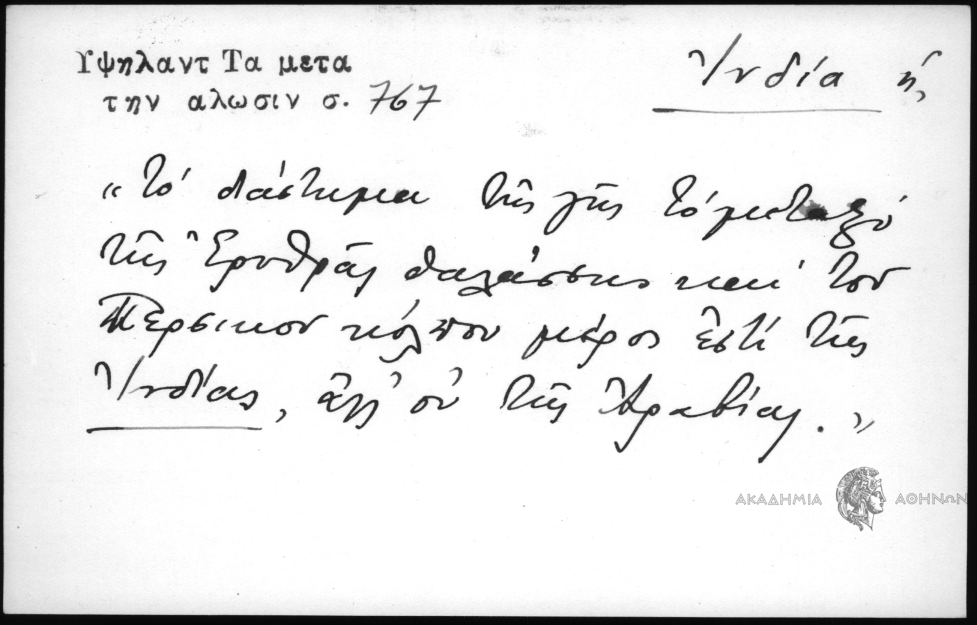 Υψηλαντ Τα μετα
την αλωσιν σ. 767
Ἰνδία ἡ,
"τό διάστημα τῆς γῆς τό μεταξύ
τῆς Ἐρυθρᾶς θαλάσσης καί τοῦ
Περσικοῦ κόλπου μέρος ἐστί τῆς
Ἰνδίας, ἀλλ' οὐ τῆς Ἀραβίας."
ΑΚΑΔΗΜΙΑ ΑΘΗΝΩΝ